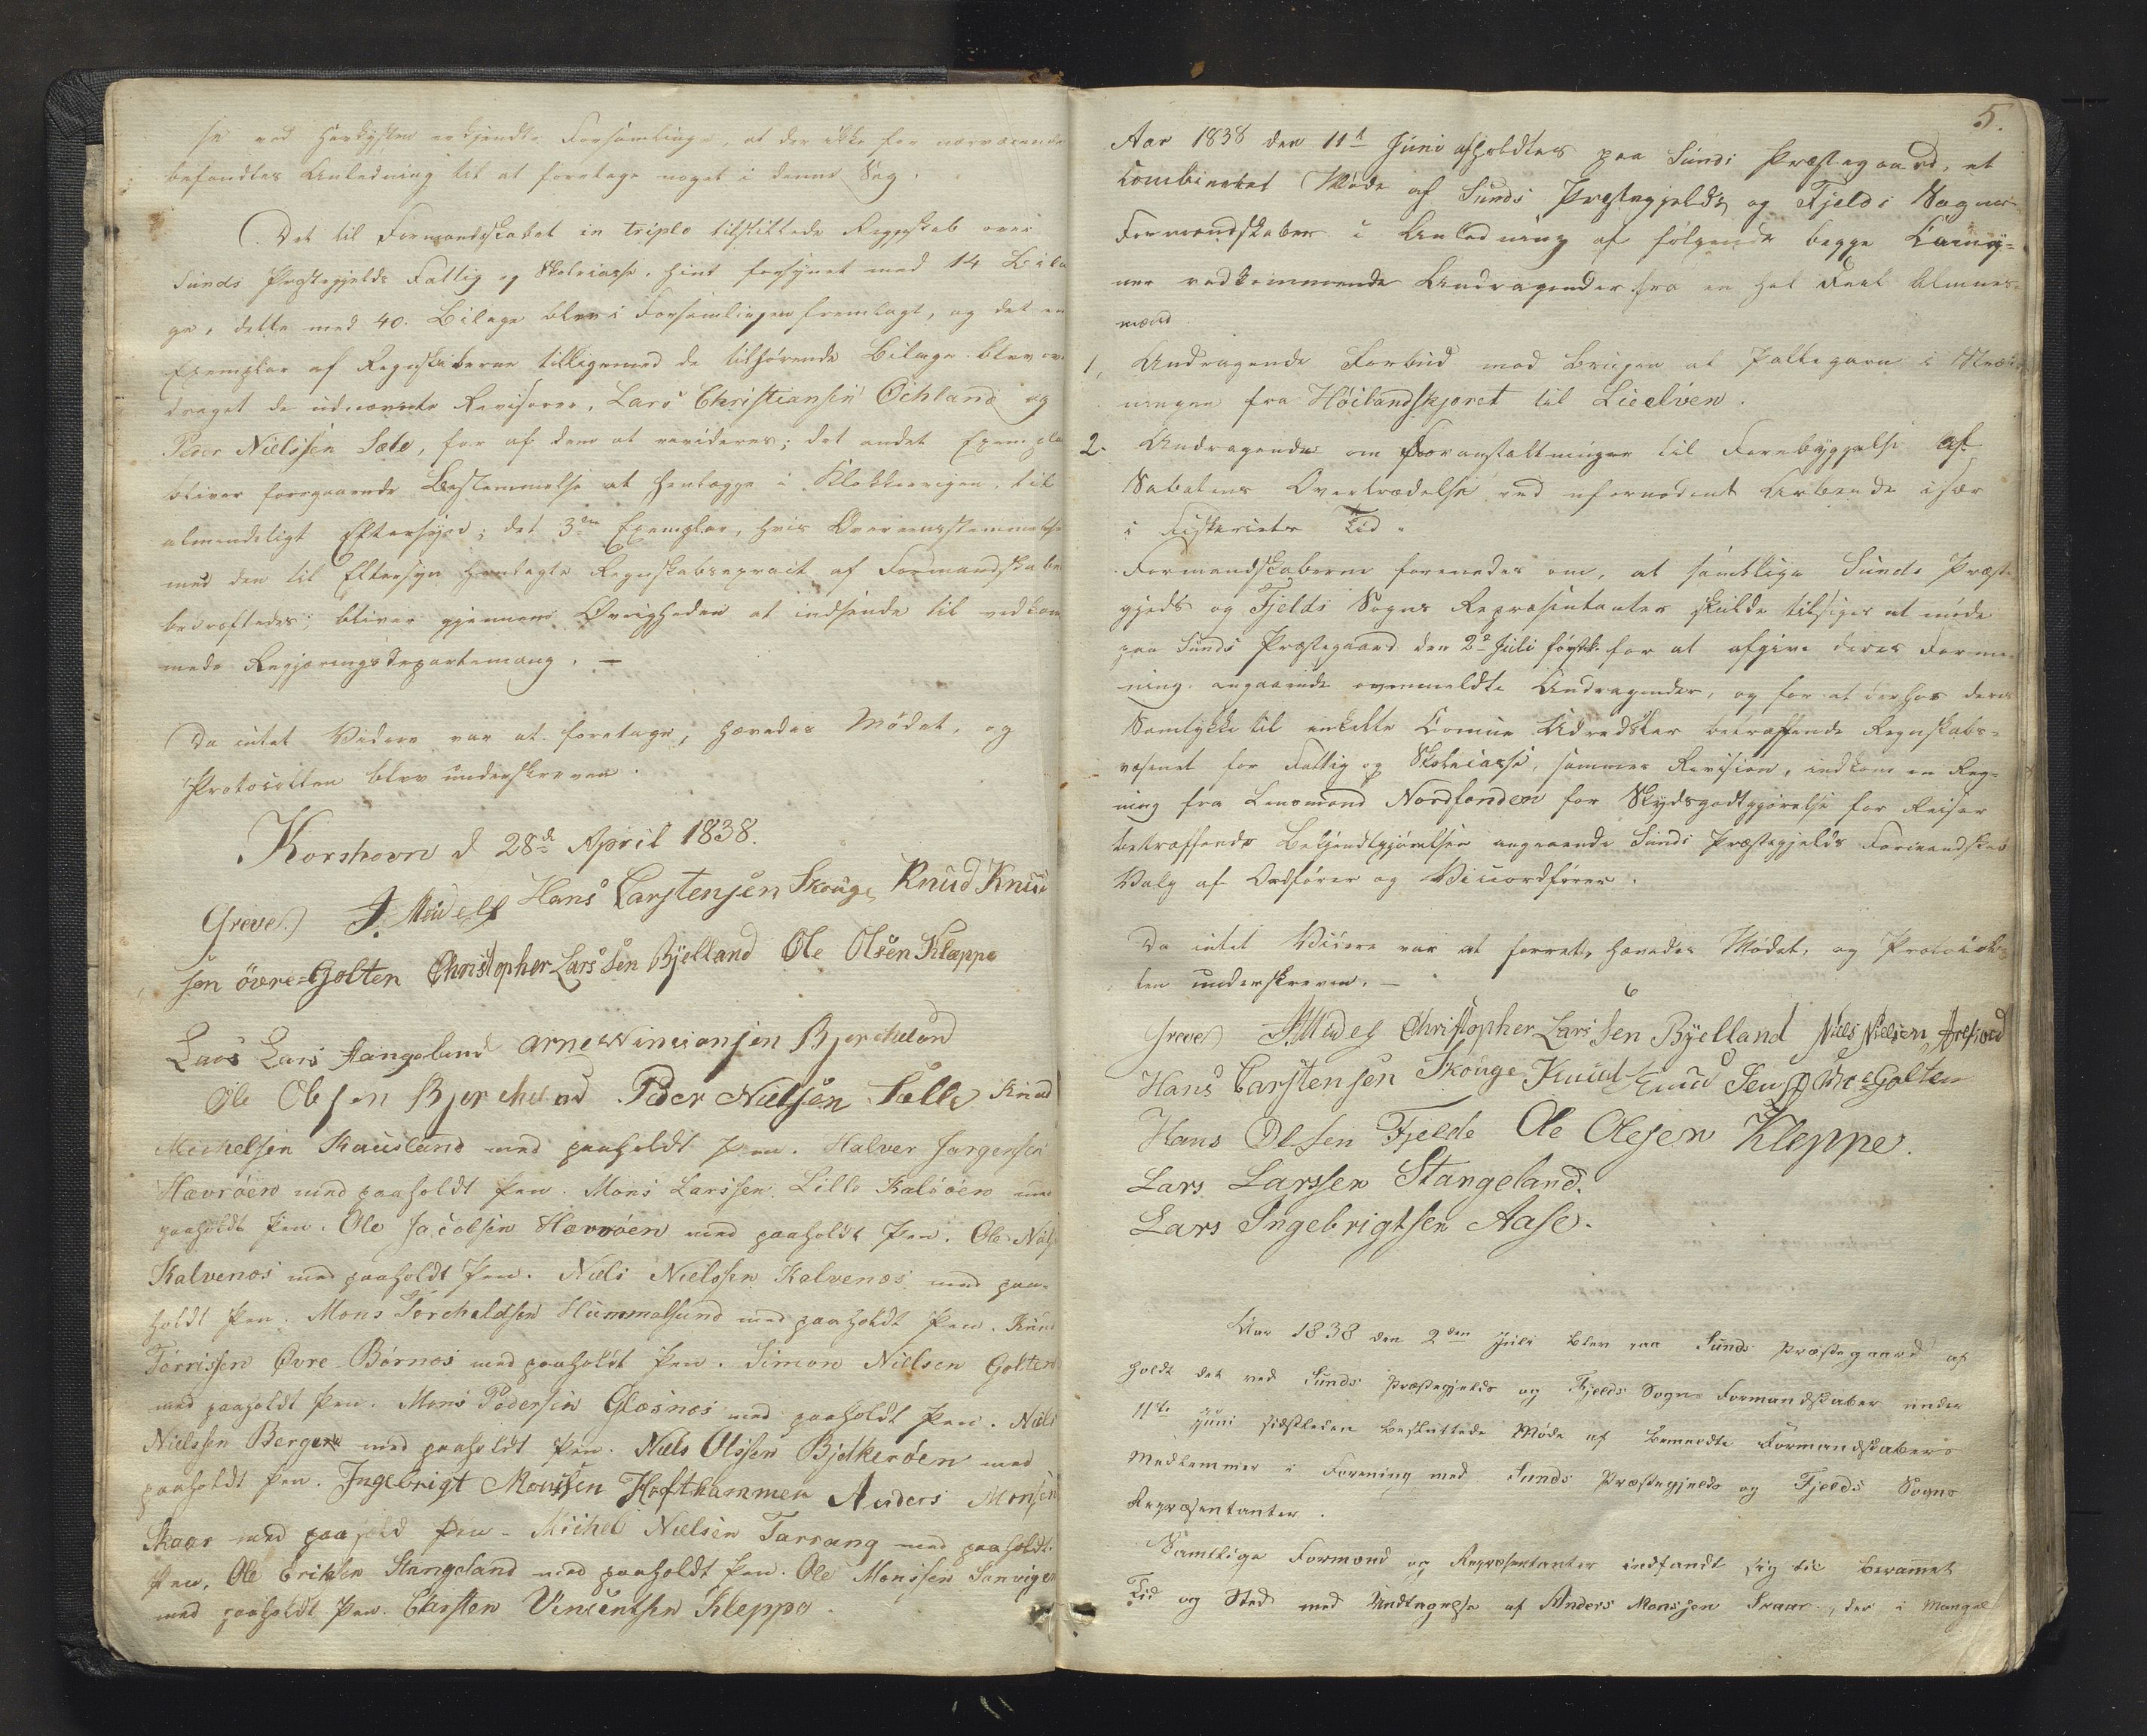 se ved  erkjendte Forsamlinge, at der ikke for nærværende
befandtes Anledning til at foretage noget i denne Sag.
Det til Formandskabet in triplo tilstillede Regnskab over
Sunds Præstegjelds Fattig og Skolecasse, hint forsynet med 14 Bila
ge, dette med 40. Bilage blev i Forsamlingen fremlagt, og det ene
Exemplar af Regnskaberne tilligemed de tilhørende Bilage blev over
draget de udnævnte Revisorer, Lars Christiansen Öchland og
Peder Nielssen Sæle, for af dem at revideres; det andet Exempla
bliver foregaaende Bestemmelse at henlægge i Klokkervigen, til
almindeligt Eftersyn; det 3die Exemplar, hvis Overeensstemmelse
med den til Eftersyn henlagte Regnskabsextract af Formandskabe
bekræftedes, bliver gjennem Øvrigheden at indsende til vedkom
mende Regjeringsdepartement. —
Da intet Videre var at foretage, hævedes Mödet, og
Protocollen blev underskreven.
Korshavn d 28de April 1838.
Greve J. Mideley Hans Carstensen Skouge Knud Knud
sen övre=Golten Christopher Larssen Bjelland Ole Olsen Kleppe
Lars Lars Stangeland Arne Wincionsen Bjercheland
Ole Olessen Bjercheland Peder Nielsen Sælle Knud
Michelsen Kausland med paaholdt Pen. Halver Jørgensen
Hævröen med paaholdt Pen. Mons Larssen Lille Kalsöen med
paaholdt Pen. Ole Jacobsen Hævröen med paaholdt Pen. Ole Niels
Kalvenæs med paaholdt Pen. Niels Nielssen Kalvenæs med paa-
holdt Pen. Mons Torchildsen Hummelsund med paaholdt Pen. Knud
Torrissen Övre-Börnæs med paaholdt Pen. Simon Nielsen Golten
med paaholdt Pen. Mons Pedersen Glæsnæs med paaholdt Pen. Niels
Nielssen Berge med paaholdt Pen. Niels Olssen Bjelkeröen med
paaholdt Pen. Ingebrigt Monssen Hofthammer Anders Monsen
Skaar med paahold Pen - Michel Nielsen Tarrang med paaholdt
Pen, Ole Eriksen Stangeland med paaholdt Pen. Ole Monssen Sanvigen
med paaholdt Pen. Carsten Vincentsen Kleppe
5.
Aar 1838 den 11te Juni afholdtes paa Sunds Præstegaard, et
combineret Møde af Sunds Præstegjelds og Fjelds Sogns
Formandskaber i Anledning af følgende begge Comu=
ner vedkommende Andragender fra en hel Deel Almues-
mænd
1, Andragende Forbud mod Brugen af Jaltegarn i Stræk-
ningen fra Höilandskjæret til Lieelven.
2. Andragende om Foranstaltninger til Forebyggelse af
Sabatens Overtrædelse ved ufornödent Arbeide især
i Fiskeriets Tid.
Formandskaberne forenedes om, at samtlige Sunds Præst-
gjelds og Fjelds Sogns Repræsentanter skulde tilsiges at møde
paa Sunds Præstegaard den 2de Juli førstk. for at afgive deres Forme-
ning angaaende ovenmeldte Andragender, og for at derhos deres
Samtykke til enkelte Comune Udredsler betræffende Regnskabs=
væsenet for Fattig og Skolecasse, sammes Revision, indkom en Reg=
ning fra Lensmand Nordfonden for Skydsgodtgjørelse for Reiser
betræffende Bekjendtgjørelsen angaaende Sunds Præstegjelds Formandskab
Valg af Ordfører og Viceordfører.
Da intet Videre var at forrette, hævedes Mødet, og Protocol-
len underskreven. —
Greve J. Mideley Christopher Larssen Byelland Niels Nielsen Arefiord
Hans Carstensen Skouge Knud Knud Sen övre Golten
Hans Olsen Fjelde Ole Olesen Kleppe.
Lars Larssen Stangeland.
Lars Ingebrigtsen Aase.
Aar 1838 den 2den Juli blev paa Sunds Præstegaard af
holdt det ved Sunds Præstegjelds og Fjelds Sogns Formandskaber under
11te Juni sidstleden besluttede Møde af bemeldte Formandskabers
Medlemmer i Forening med Sunds Præstegjelds og Fjelds Sogns
Repræsentanter.
Samtlige Formænd og Repræsentanter indfandt sig til berammet
Tid og Sted med Undtagelse af Anders Monssen Skaar, der i Mangel